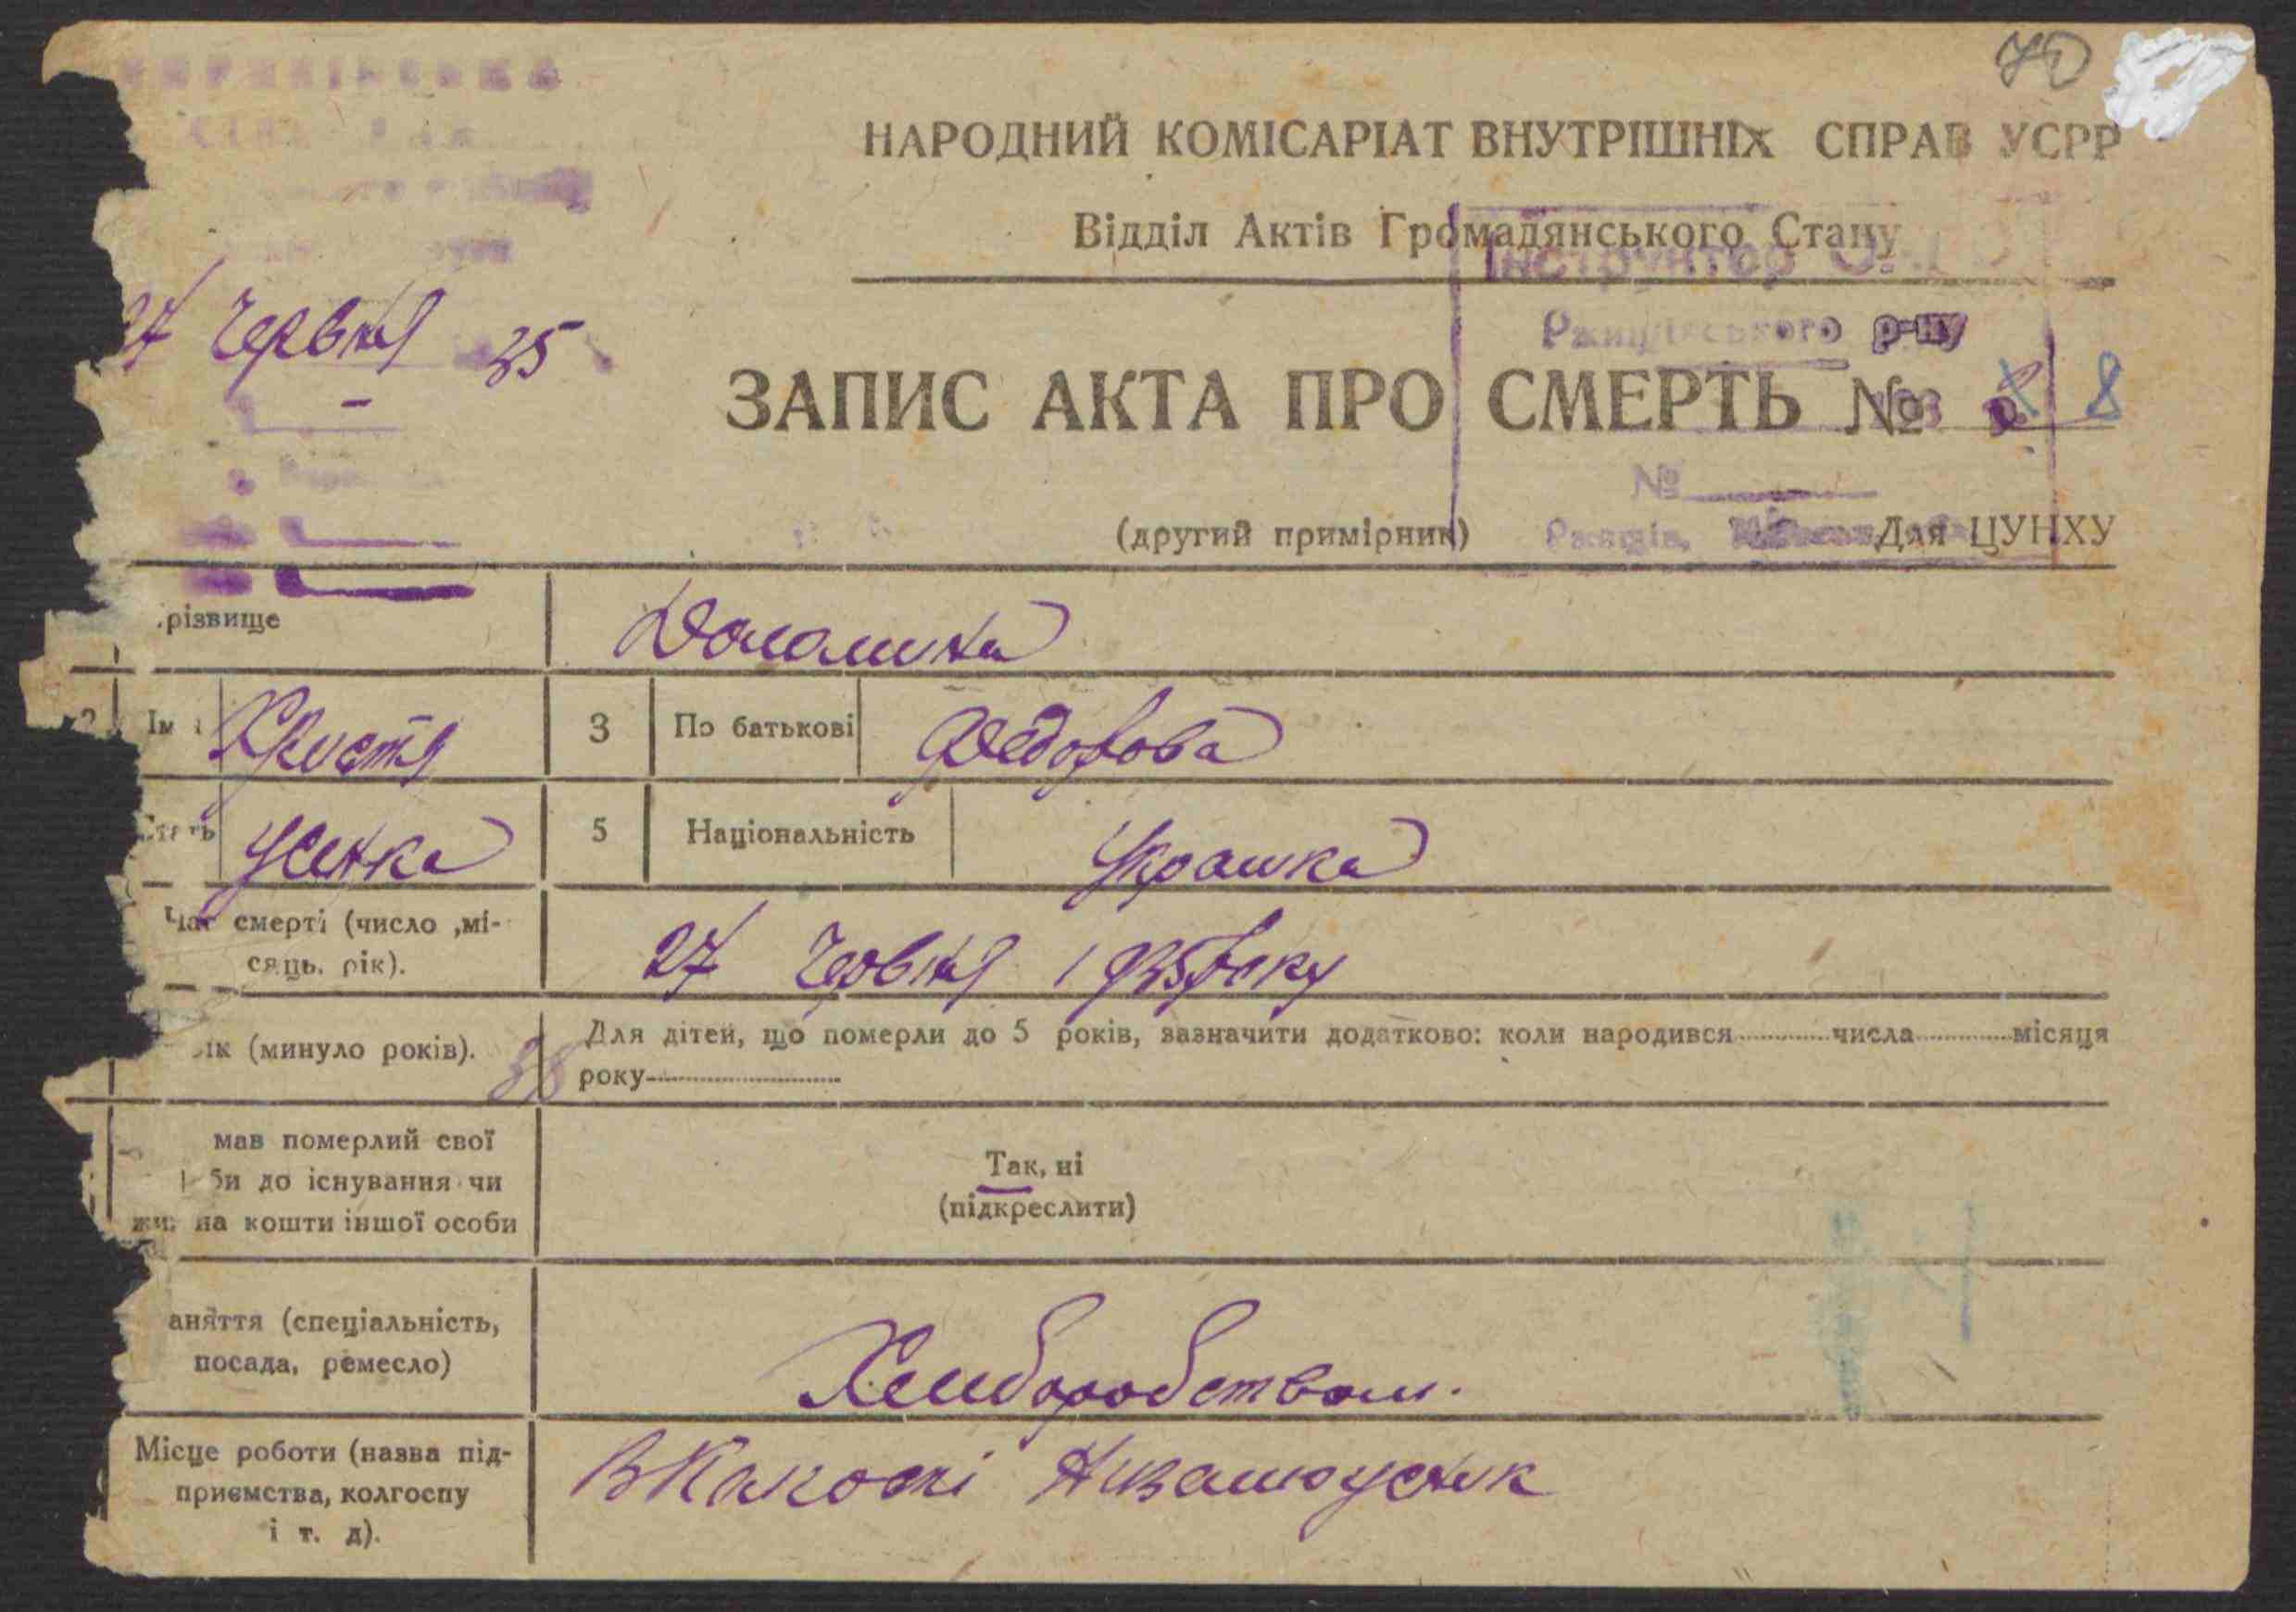 70
НАРОДНИЙ КОМІСАРІАТ ВНУТРІШНІХ СПРАВ УСРР
Відділ Актів Громадянського Стану
Інструктор
Ржищівського р-ну
27 Червня 35
ЗАПИС АКТА ПРО СМЕРТЬ № 8
№
(другий примірник)
Ржищів,
Для ЦУНХУ
різвище
2 Ім Христя 3 По батькові Федорова
Стать Жінка 5 Національність Українка
Час смерті (число ,мі-
сяць, рік).
27 Червня 1935 року
ік (минуло років).
38
Для дітей, що померли до 5 років, зазначити додатково: коли народився числа місяця
року
мав померлий свої
би до існування чи
жи на кошти іншої особи
Так, ні
(підкреслити)
аняття (спеціальність,
посада, ремесло)
Хлиборобством.
Місце роботи (назва під-
приємства, колгоспу
і т. д).